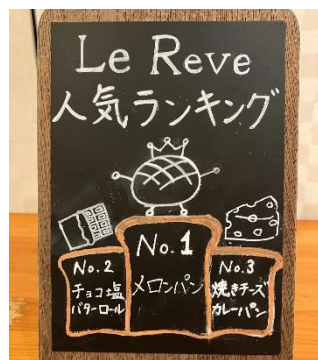 Le Reve
人気ランキング
No.1
メロンパン
No.2
チョコ塩
バターロール
No.3
焼きチーズ
カレーパン